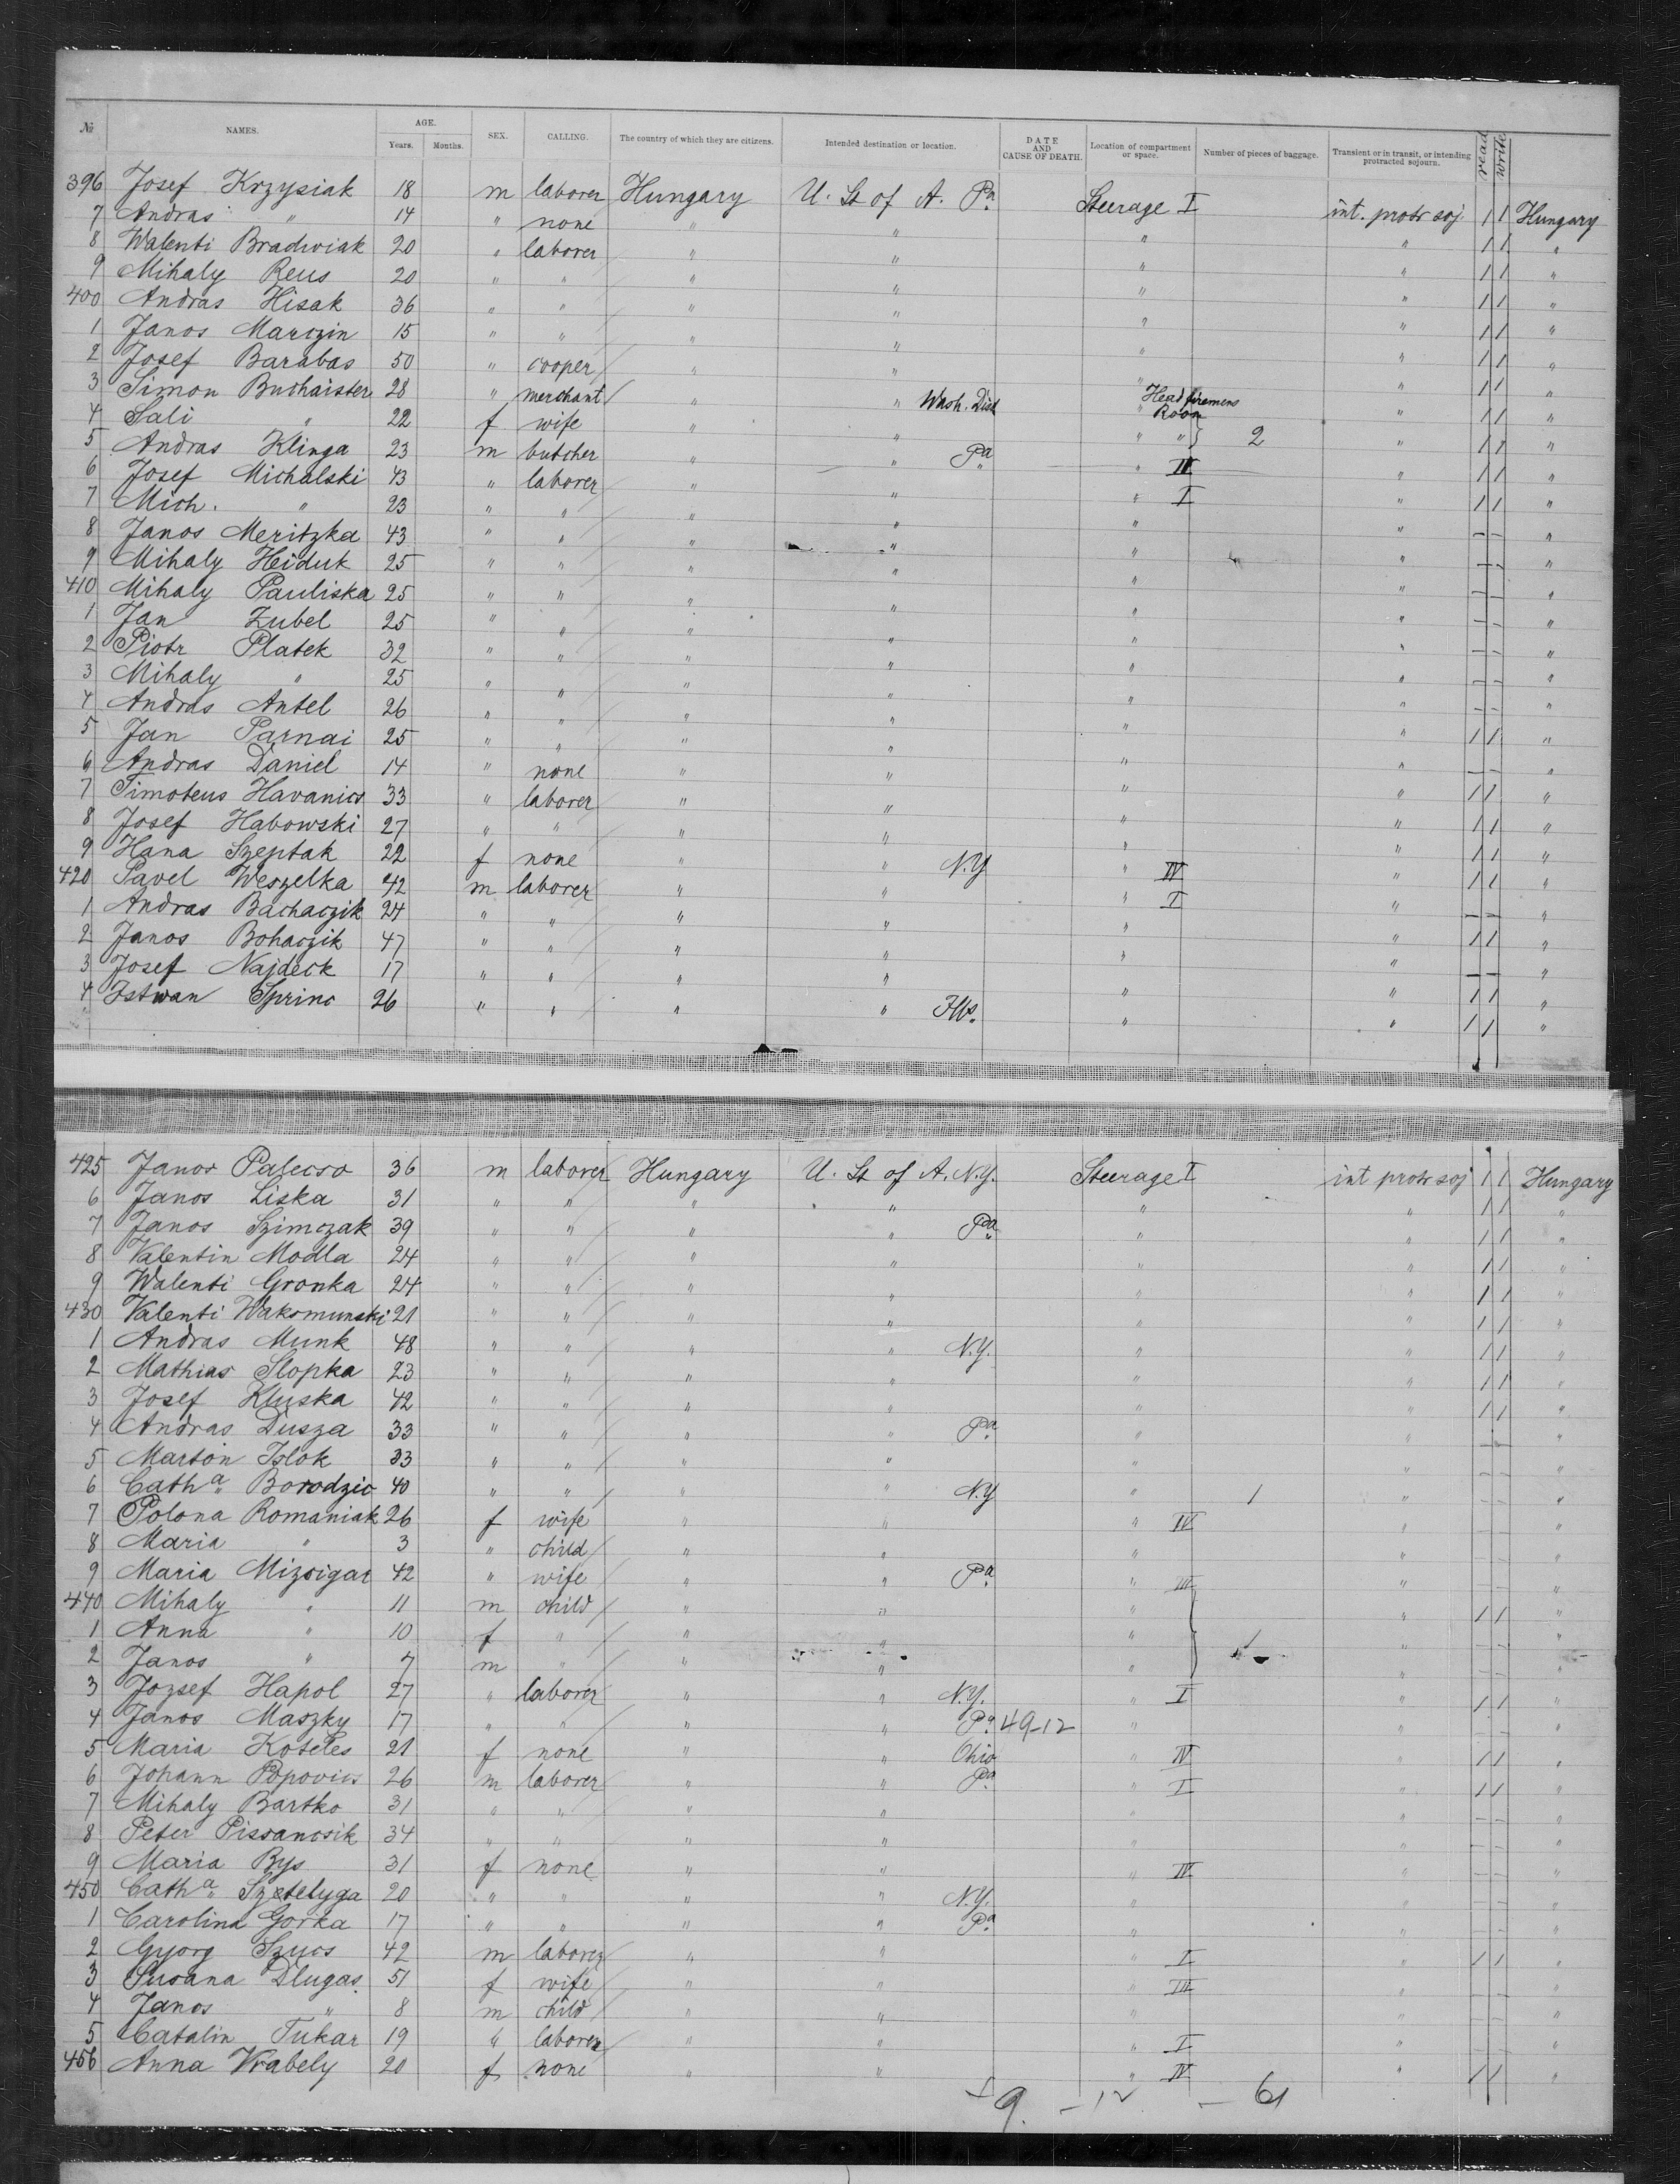 № NAMES. AGE. Years. Months. SEX. CALLING. The country of which they are citizens. Intended destination or location. DATE AND CAUSE OF DEATH. Location of compartment or space. Number of pieces of baggage. Transient or in transit, or intending protracted sojourn. read write
396 Josef Krzysiak 18 m laborer Hungary U. St of A. Pa. Steerage I int. protr soj. 1 1 Hungary
7 Andras " 14 " none " " " " 1 1 "
8 Walenti Bradwiak 20 " laborer " " " " 1 1 "
9 Mihaly Reus 20 " " " " " " 1 1 "
400 Andras Hisak 36 " " " " " " 1 1 "
1 Janos Marczin 15 " " " " " " 1 1 "
2 Josef Barabas 50 " cooper " " " " 1 1 "
3 Simon Buchaister 28 " merchant " " Wash. Dist Head firemens Room " 1 1 "
4 Sali " 22 f wife " " " " 2 " 1 1 "
5 Andras Klinga 23 m butcher " " Pa. " III " 1 1 "
6 Josef Michalski 43 " laborer " " " I " 1 1 "
7 Mich. " 23 " " " " " " - - "
8 Janos Meritzka 43 " " " " " " - - "
9 Mihaly Heiduk 25 " " " " " " - - "
410 Mihaly Pauliska 25 " " " " " " - - "
1 Jan Zubel 25 " " " " " " - - "
2 Piotr Platek 32 " " " " " " - - "
3 Mihaly " 25 " " " " " " - - "
4 Andras Antel 26 " " " " " " 1 1 "
5 Jan Parnai 25 " " " " " " - - "
6 Andras Daniel 14 " none " " " " 1 1 "
7 Timoteus Havanics 33 " laborer " " " " 1 1 "
8 Josef Habowski 27 " " " " " " 1 1 "
9 Hana Szeptak 22 f none " " N.Y " IV " 1 1 "
420 Pavel Weszelka 42 m laborer " " " I " - - "
1 Andras Bachaczik 24 " " " " " " 1 1 "
2 Janos Bohaczik 47 " " " " " " - - "
3 Josef Najdeck 17 " " " " " " 1 1 "
4 Istwan Sprinc 26 " " " " Ills. " " 1 1 "
425 Janos Palecso 36 m laborer Hungary U. St of A. N.Y. Steerage I int protr soj 1 1 Hungary
6 Janos Liska 31 " " " " " " 1 1 "
7 Janos Szimczak 39 " " " " Pa. " " 1 1 "
8 Valentin Modla 24 " " " " " " 1 1 "
9 Walenti Gronka 24 " " " " " " 1 1 "
430 Valenti Waksmunski 21 " " " " " " 1 1 "
1 Andras Munk 48 " " " " N.Y. " " 1 1 "
2 Mathias Slopka 23 " " " " " " 1 1 "
3 Josef Kluska 42 " " " " " " 1 1 "
4 Andras Dusza 33 " " " " Pa. " " - - "
5 Marton Islok 33 " " " " " " - - "
6 Catha. Borodzic 40 " " " " N.Y " 1 " - - "
7 Polona Romaniak 26 f wife " " " IV " - - "
8 Maria " 3 " child " " " " - - "
9 Maria Mizsigar 42 " wife " " Pa. " III " - - "
440 Mihaly " 11 m child " " " " 1 1 "
1 Anna " 10 f " " " " 1 " - - "
2 Janos " 7 m " " " " " - - "
3 Jozsef Hapol 27 " laborer " " N.Y. " I " 1 1 "
4 Janos Maszky 17 " " " " Pa. 49-12 " " - - "
5 Maria Koteles 21 f none " " Ohio " IV " 1 1 "
6 Johann Popovics 26 m laborer " " Pa. " I " 1 1 "
7 Mihaly Bartko 31 " " " " " " - - "
8 Peter Pissancsik 34 " " " " " " - - "
9 Maria Bys 31 f none " " " IV " - - "
450 Catha. Szetelyga 20 " " " " N.Y. " " - - "
1 Carolina Gorka 17 " " " " Pa. " " - - "
2 Gyorg Szucs 42 m laborer " " " I " 1 1 "
3 Susana Dlugas. 51 f wife " " " III " - - "
4 Janos " 8 m child " " " " - - "
5 Catalin Tukar 19 " laborer " " " I " - - "
456 Anna Vrabely 20 f none " " " IV " 1 1 "
9. - 12 - 61